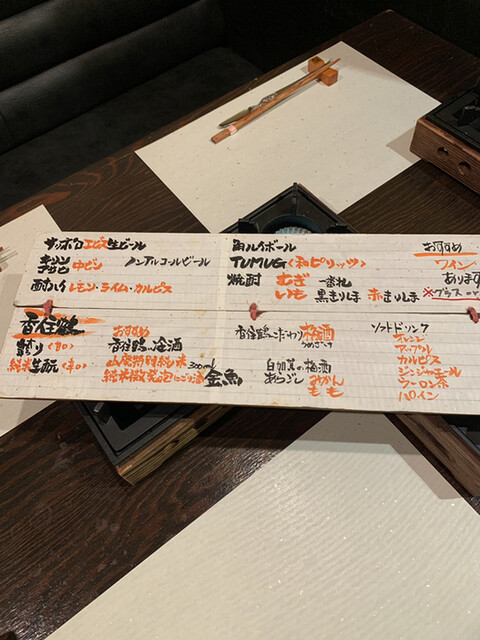 サッポロヱビス生ビール
キリン
アサヒ 中ビン ノンアルコールビール
酎ハイ レモン・ライム・カルピス
角ハイボール
TUMUGI(和ピリッツ)
焼酎 むぎ 一番札
いも 黒きりしま 赤きりしま
おすすめ
ワイン
あります
※グラス or
香住鶴
(甘)
純米 生酛 (辛)
おすすめ
香住鶴 冷酒
山廃 純米 300ml
純米微発泡にごり酒 金魚
香住鶴こだわり梅酒
うめざけ
白加賀の梅酒
あらごし みかん
もも
ソフトドリンク
オレンジ
アップル
カルピス
ジンジャエール
ウーロン茶
パイン